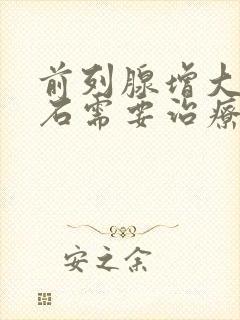 前列腺增大
石需要治疗
安之余